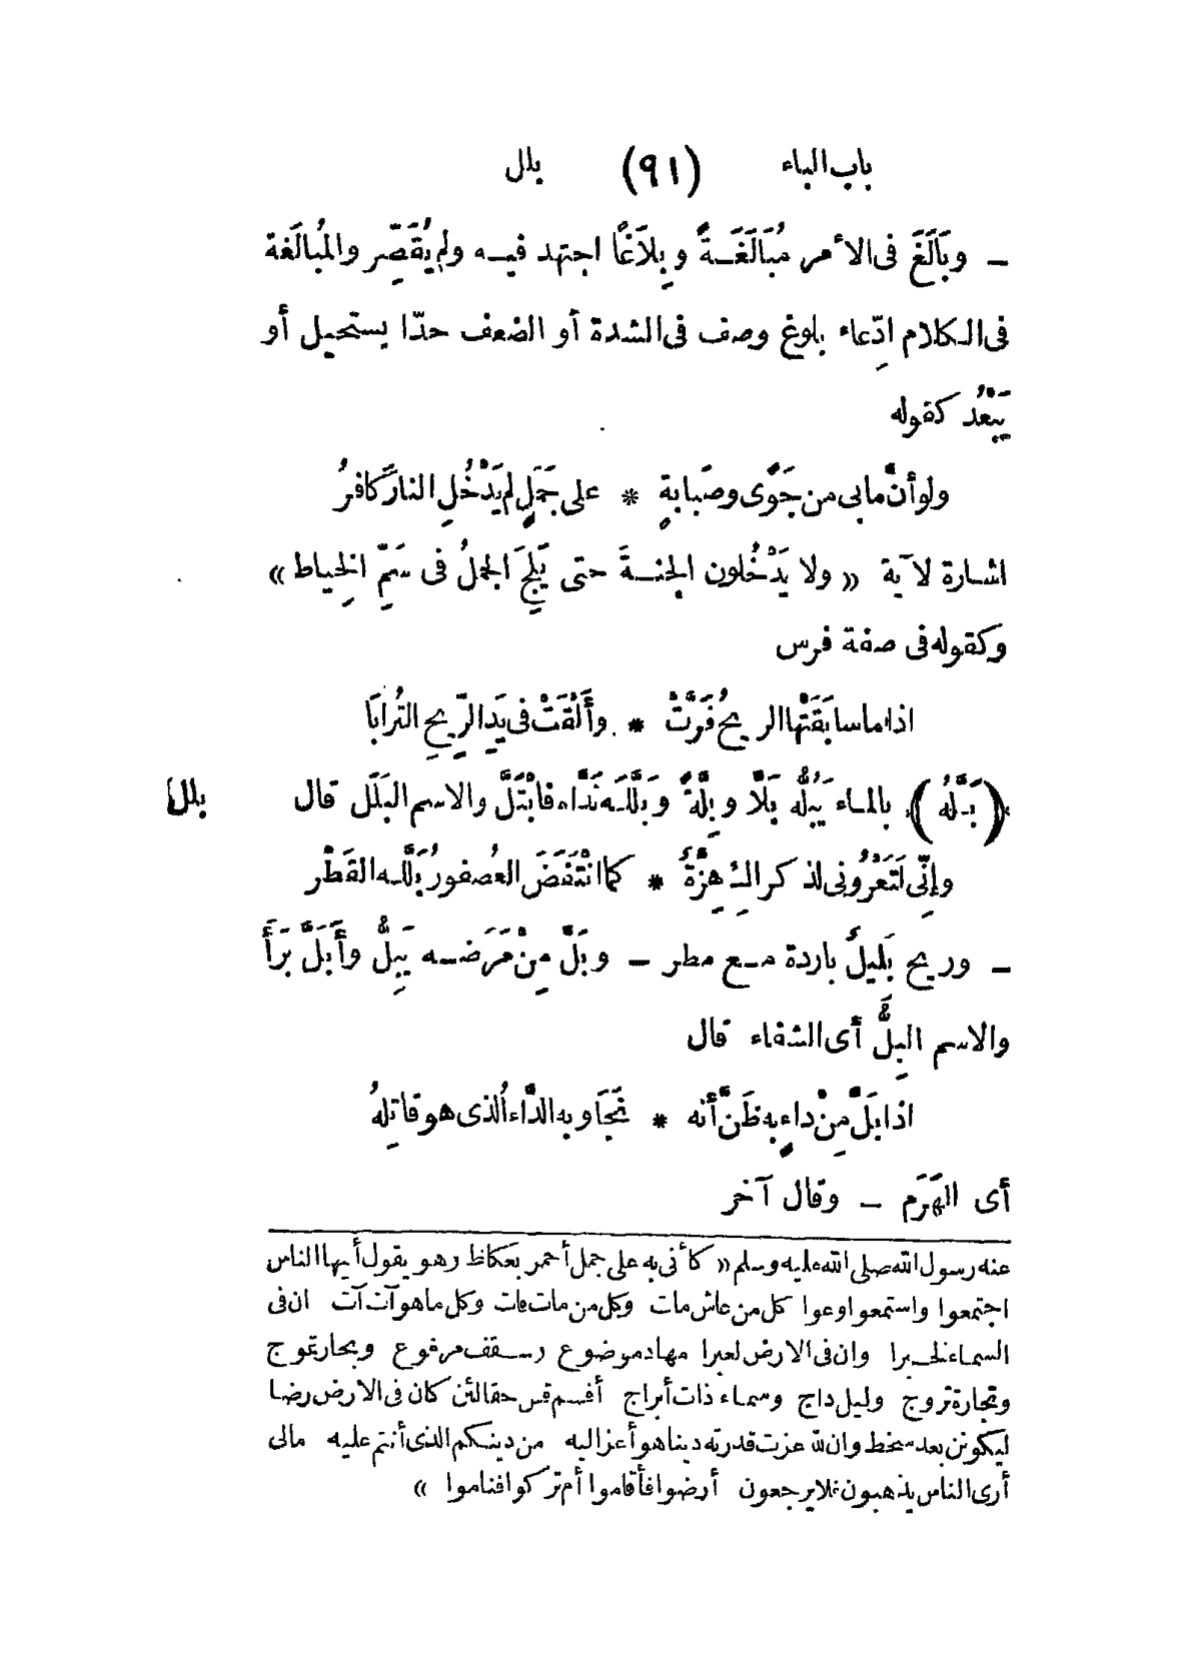 باب الباء (٩١) بلل
— وبَالَغَ فى الأمر مُبَالَغَةً وبِلاَغًا اجتهد فيه ولم يُقَصِّر والمُبالَغة
فى الكلام ادِّعاء بلوغ وصف فى الشدة أو الضعف حدّا يستحيل أو
يَبْعُد كقوله
ولو أنَّ مابى من جَوًى وصَبابةٍ * على جَمَلٍ لم يَدْخُلِ النارَ كافرُ
اشارة لآية « ولا يَدْخُلون الجنةَ حتى يَلِجَ الجملُ فى سَمِّ الخِياط »
وكقوله فى صفة فرس
اذا ما سابَقَتْها الريحُ فَرَّتْ * وأَلْقَتْ فى يَدِ الرِّيحِ التُرابَا
بلل (بَلَّهُ) بالماء يَبُلُّه بَلًّا وبِلَّةً وبَلَّلَه نَدَّاه فابْتَلَّ والاسم البَلَل قال
وإنِّى لَتَعْرُونى لذكراكِ هِزَّةٌ * كما انْتَفَضَ العُصفورُ بَلَّله القَطْر
— وريح بَلِيلٌ باردة مع مطر — وبَلَّ مِنْ مَرَضه يَبِلُّ وأَبَلَّ بَرَأَ
والاسم البِلُّ أى الشفاء قال
اذا بَلَّ مِنْ داءٍ به ظَنَّ أنه * نَجَا وبه الدَّاءُ الذى هو قاتِلُهُ
أى الهَرَم — وقال آخر
عنه رسول الله صلى الله عليه وسلم « كأنى به على جمل أحمر بعكاظ وهو يقول أيها الناس
اجتمعوا واستمعوا وعوا كل من عاش مات وكل من مات فات وكل ما هو آت آت ان فى
السماء لخبرا وان فى الارض لعبرا مهاد موضوع وسقف مرفوع وبحار تموج
وتجارة تروج وليل داج وسماء ذات أبراج أقسم قس حقا لئن كان فى الارض رضا
ليكونن بعد سخط وان لله عزت قدرته دينا هو أعز اليه من دينكم الذى أنتم عليه مالى
أرى الناس يذهبون فلا يرجعون أرضوا فأقاموا أم تركوا فناموا »